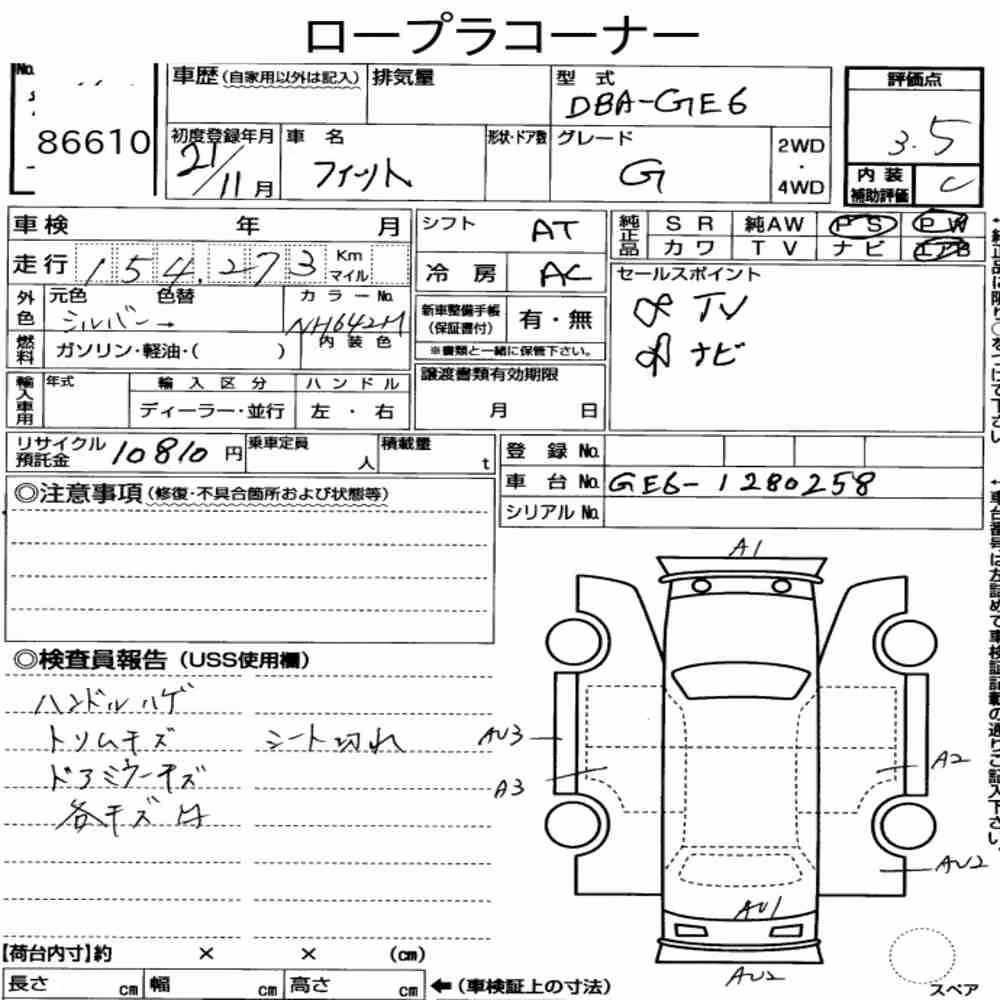 ロープラコーナー
No.
86610
車歴(自家用以外は記入) 排気量 型 式 DBA-GE6
評価点 3.5
初度登録年月 21/11月 車 名 フィット 形状・ドア数 グレード G 2WD・4WD
内 装 補助評価 C
車 検 年 月
シフト AT
純正品 S R 純AW P S P W
カ ワ T V ナ ビ エアB
走 行 154,273 Km マイル
冷 房 AC
セールスポイント
TV
ナビ
外色 元色 色替 カ ラ ー No.
シルバー NH642M
新車整備手帳(保証書付) 有・無
※書類と一緒に保管下さい。
燃料 ガソリン・軽油・( ) 内 装 色
輸入車用 年式 輸 入 区 分 ハ ン ド ル
ディーラー・並行 左 ・ 右
譲渡書類有効期限
月 日
リサイクル預託金 10810 円 乗車定員 人 積載量 t
登 録 No.
車 台 No. GE6-1280258
シリアル No.
◎注意事項(修復・不具合箇所および状態等)
◎検査員報告(USS使用欄)
ハンドルハゲ
トリムキズ シート切れ
ドアミラーキズ
各キズ
A1
AU3
A3
A2
AU2
AU1
AU2
スペア
【荷台内寸】約 × × (cm)
長さ cm 幅 cm 高さ cm ←(車検証上の寸法)
←純正品に限り○をつけて下さい
←車台番号は左詰めで車検証記載の通りご記入下さい。